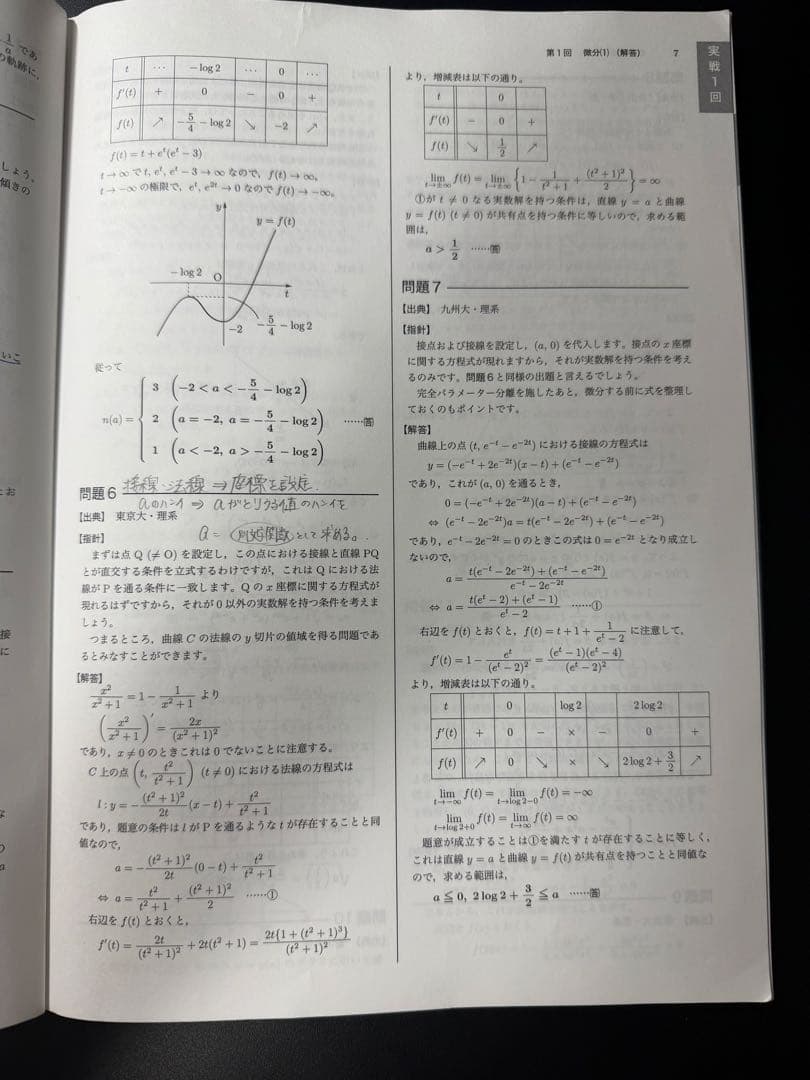 第1回 微分(1)(解答) 7
実戦1回
t ⋯ −log 2 ⋯ 0 ⋯
f′(t) + 0 − 0 +
f(t) ↗ −5/4 − log 2 ↘ −2 ↗
f(t) = t + e^t(e^t − 3)
t → ∞ で t, e^t, e^t − 3 → ∞ なので, f(t) → ∞。
t → −∞ の極限で, e^t, e^{2t} → 0 なので f(t) → −∞。
y
y = f(t)
−log 2
O
t
−2
−5/4 − log 2
従って
n(a) =
3 (−2 < a < −5/4 − log 2)
2 (a = −2, a = −5/4 − log 2) ⋯⋯答
1 (a < −2, a > −5/4 − log 2)
問題6 接線・法線 ⇒ 座標を設定.
aのハンイ ⇒ aがとりうる値のハンイを
【出典】 東京大・理系
a = として求める。
【指針】
まずは点 Q (≠ O) を設定し,この点における接線と直線 PQ
とが直交する条件を立式するわけですが,これは Q における法
線が P を通る条件に一致します。Q の x 座標に関する方程式が
現れるはずですから,それが 0 以外の実数解を持つ条件を考えま
しょう。
つまるところ,曲線 C の法線の y 切片の値域を得る問題であ
るとみなすことができます。
【解答】
x²/(x² + 1) = 1 − 1/(x² + 1) より
(x²/(x² + 1))′ = 2x/(x² + 1)²
であり,x ≠ 0 のときこれは 0 でないことに注意する。
C 上の点 (t, t²/(t² + 1)) (t ≠ 0) における法線の方程式は
l : y = −(t² + 1)²/2t (x − t) + t²/(t² + 1)
であり,題意の条件は l が P を通るような t が存在することと同
値なので,
a = −(t² + 1)²/2t (0 − t) + t²/(t² + 1)
⇔ a = t²/(t² + 1) + (t² + 1)²/2 ⋯⋯①
右辺を f(t) とおくと,
f′(t) = 2t/(t² + 1)² + 2t(t² + 1) = 2t{1 + (t² + 1)³}/(t² + 1)²
より,増減表は以下の通り。
t 0
f′(t) − 0 +
f(t) ↘ 1/2 ↗
lim_{t→±∞} f(t) = lim_{t→±∞} {1 − 1/(t² + 1) + (t² + 1)²/2} = ∞
①が t ≠ 0 なる実数解を持つ条件は,直線 y = a と曲線
y = f(t) (t ≠ 0) が共有点を持つ条件に等しいので,求める範
囲は,
a > 1/2 ⋯⋯答
問題7
【出典】 九州大・理系
【指針】
接点および接線を設定し,(a, 0) を代入します。接点の x 座標
に関する方程式が現れますから,それが実数解を持つ条件を考え
るのみです。問題6と同様の出題と言えるでしょう。
完全パラメーター分離を施したあと,微分する前に式を整理し
ておくのもポイントです。
【解答】
曲線上の点 (t, e^{−t} − e^{−2t}) における接線の方程式は
y = (−e^{−t} + 2e^{−2t})(x − t) + (e^{−t} − e^{−2t})
であり,これが (a, 0) を通るとき,
0 = (−e^{−t} + 2e^{−2t})(a − t) + (e^{−t} − e^{−2t})
⇔ (e^{−t} − 2e^{−2t})a = t(e^{−t} − 2e^{−2t}) + (e^{−t} − e^{−2t})
であり,e^{−t} − 2e^{−2t} = 0 のときこの式は 0 = e^{−2t} となり成立し
ないので,
a = {t(e^{−t} − 2e^{−2t}) + (e^{−t} − e^{−2t})}/(e^{−t} − 2e^{−2t})
⇔ a = {t(e^t − 2) + (e^t − 1)}/(e^t − 2) ⋯⋯①
右辺を f(t) とおくと,f(t) = t + 1 + 1/(e^t − 2) に注意して,
f′(t) = 1 − e^t/(e^t − 2)² = (e^t − 1)(e^t − 4)/(e^t − 2)²
より,増減表は以下の通り。
t 0 log 2 2 log 2
f′(t) + 0 − × − 0 +
f(t) ↗ 0 ↘ × ↘ 2 log 2 + 3/2 ↗
lim_{t→−∞} f(t) = lim_{t→log 2−0} f(t) = −∞
lim_{t→log 2+0} f(t) = lim_{t→∞} f(t) = ∞
題意が成立することは①を満たす t が存在することに等しく,
これは直線 y = a と曲線 y = f(t) が共有点を持つことと同値な
ので,求める範囲は,
a ≦ 0, 2 log 2 + 3/2 ≦ a ⋯⋯答